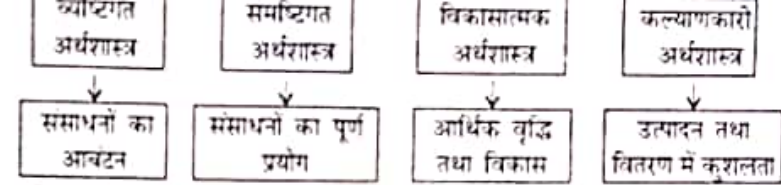 व्यष्टिगत
अर्थशास्त्र
समष्टिगत
अर्थशास्त्र
विकासात्मक
अर्थशास्त्र
कल्याणकारी
अर्थशास्त्र
संसाधनों का
आबंटन
संसाधनों का पूर्ण
प्रयोग
आर्थिक वृद्धि
तथा विकास
उत्पादन तथा
वितरण में कुशलता